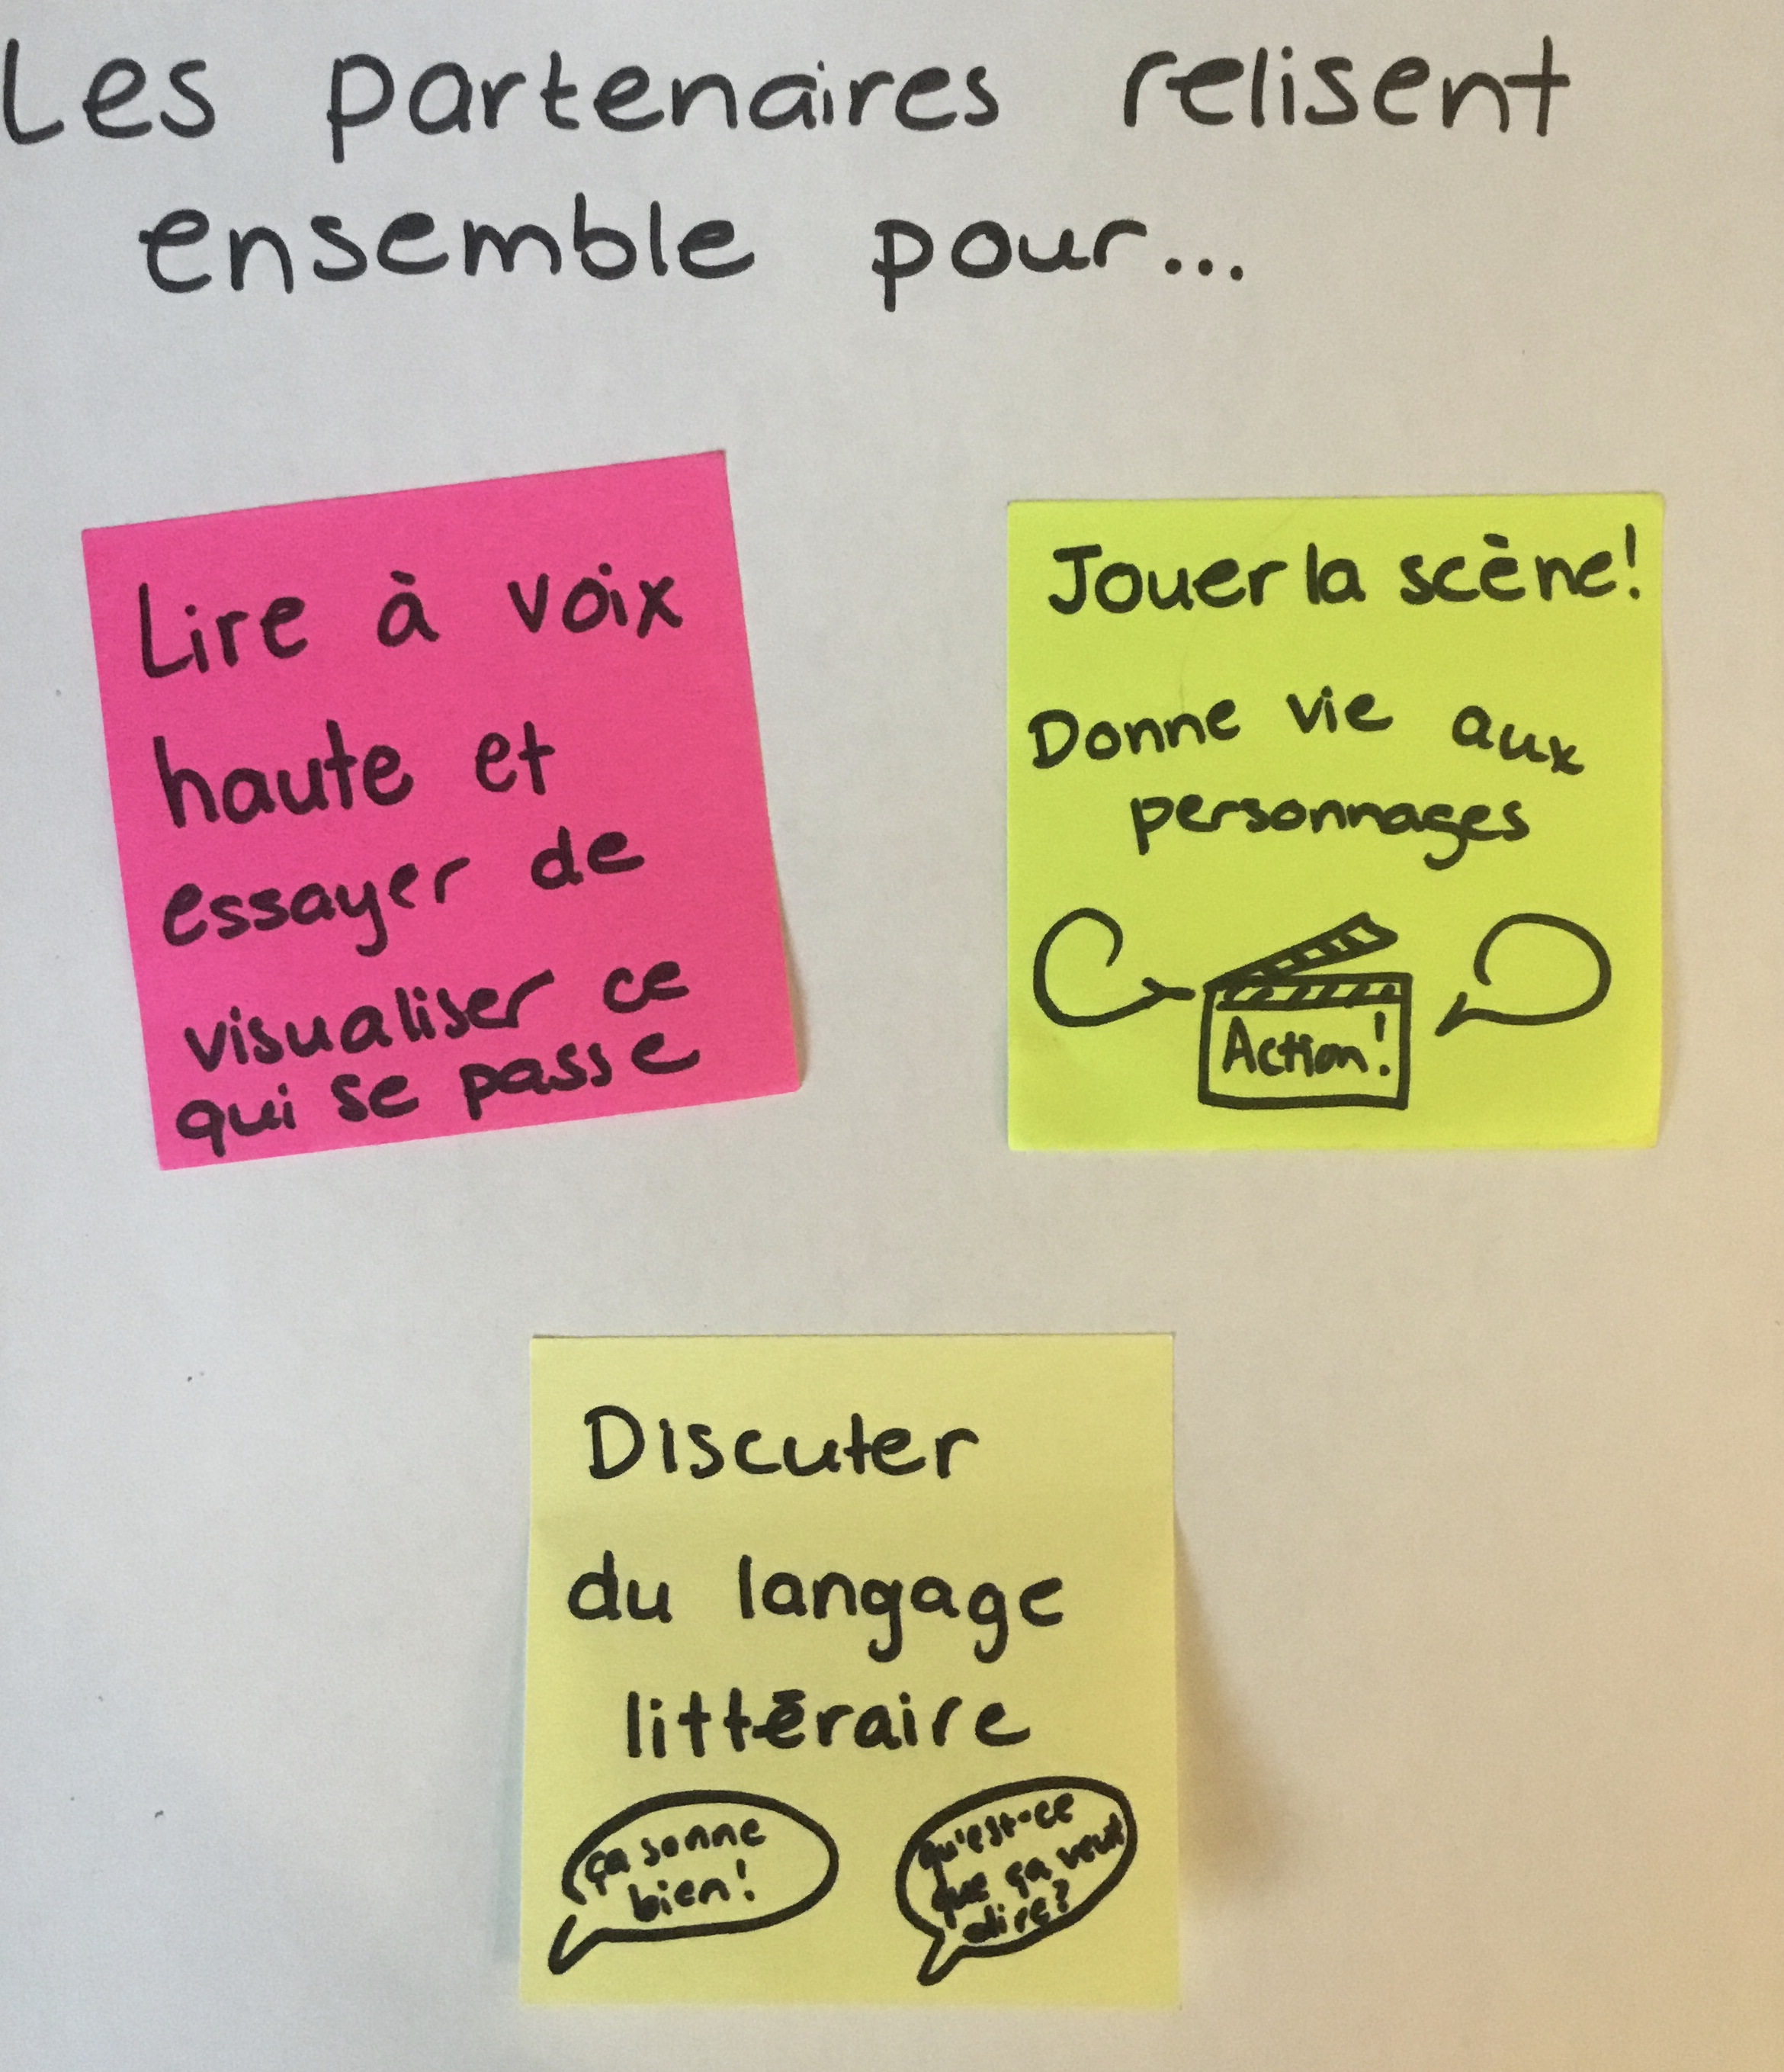 Les partenaires relisent
ensemble pour...
Lire à voix
haute et
essayer de
visualiser ce
qui se passe
Jouer la scène!
Donne vie aux
personnages
Action!
Discuter
du langage
littéraire
ça sonne
bien!
qu'est-ce
que ça veut
dire?